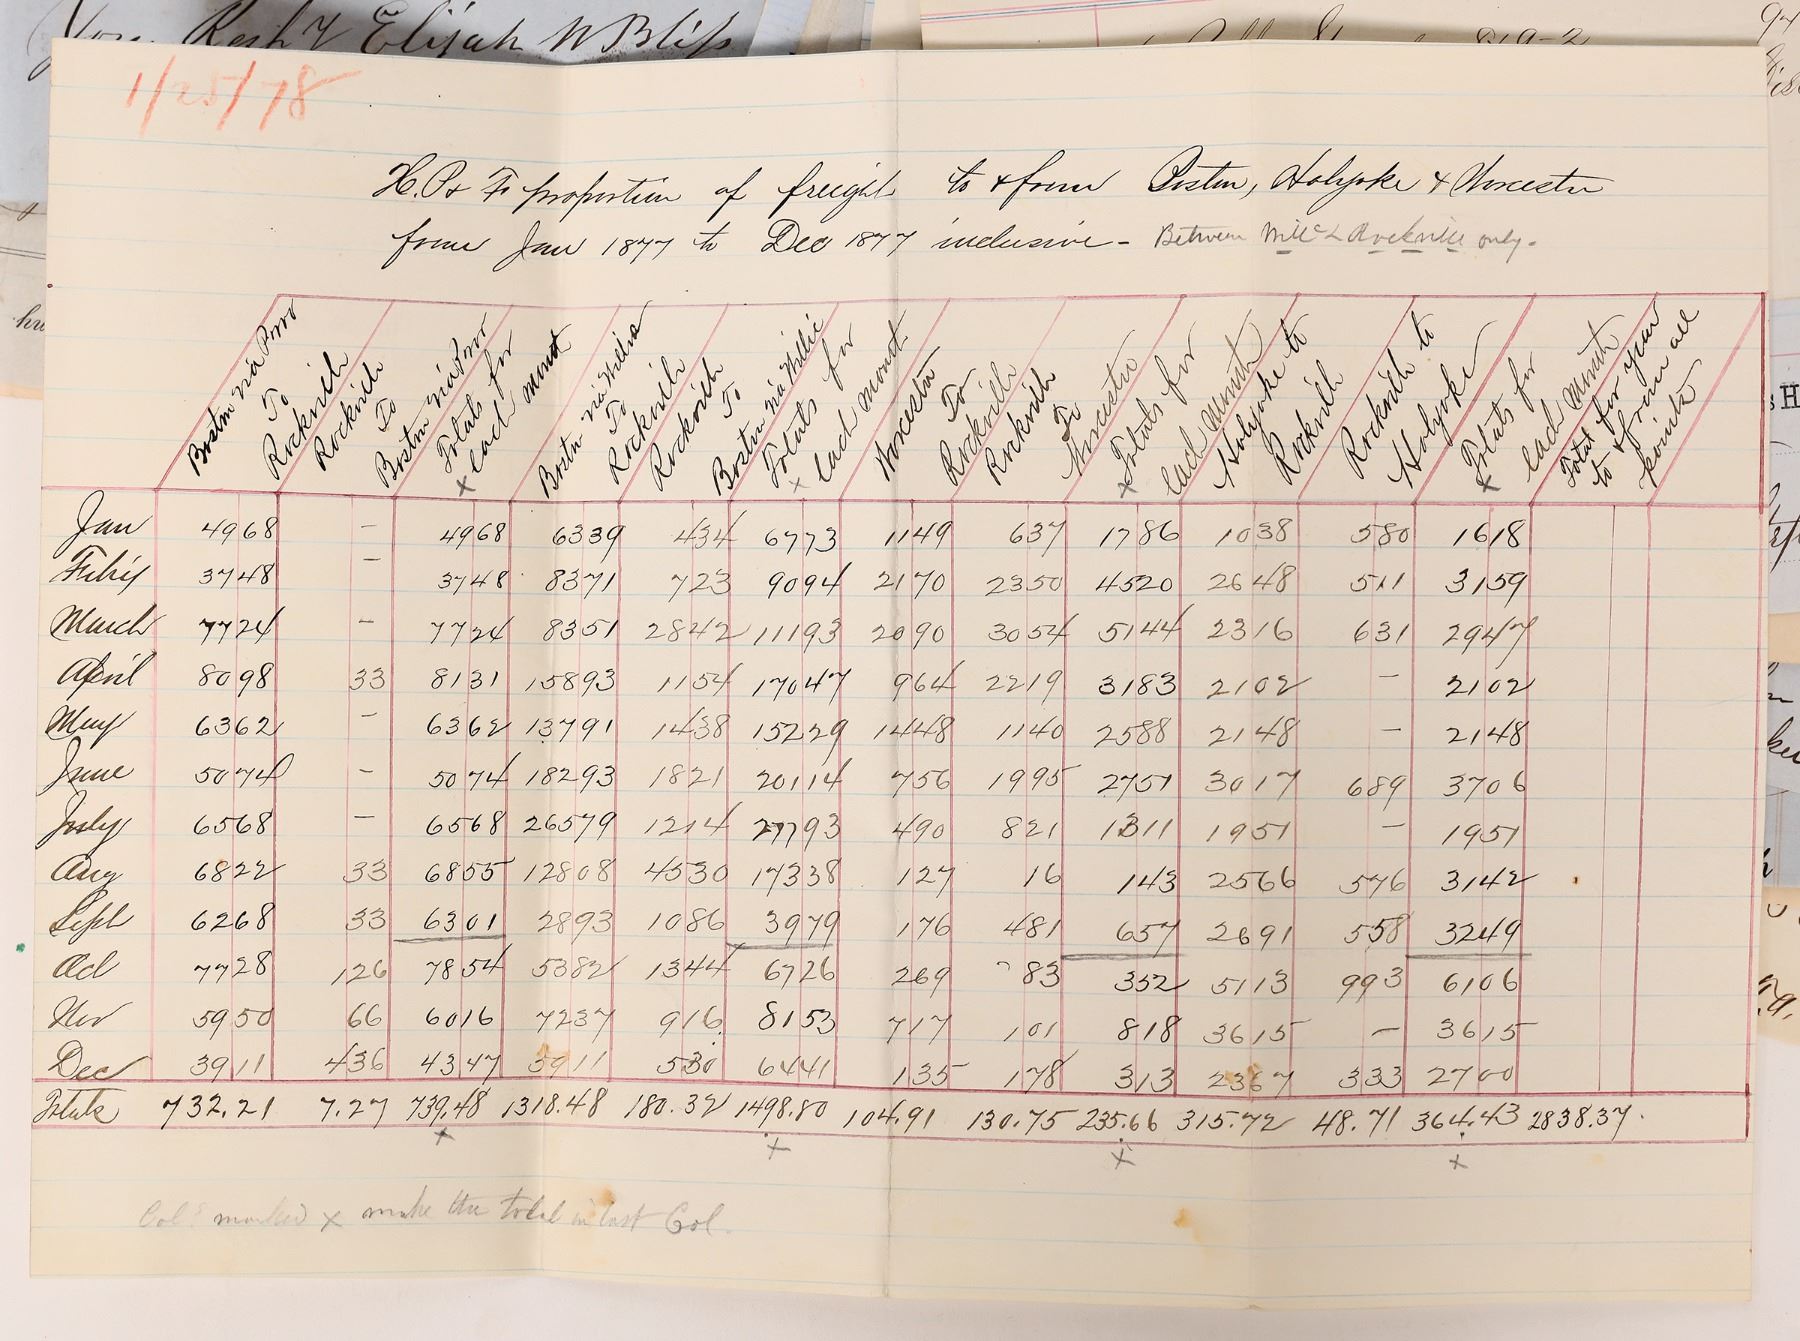 Resply Elijah W Bliss
1/25/78
H. P. & F. proportion of freight to & from Boston, Holyoke & Worcester
from Jan 1877 to Dec 1877 inclusive - Between Willc & Rockville only -
Boston via Prov To Rockville
Rockville To Boston via Prov
Totals for each Month
Boston via Willia To Rockville
Rockville To Boston via Willic
Totals for each Month
Worcester To Rockville
Rockville To Worcester
Totals for each Month
Holyoke to Rockville
Rockville to Holyoke
Totals for each Month
Total for year to & from all points
x x x x
Jan 4968 - 4968 6339 434 6773 1149 637 1786 1038 580 1618
Feby 3748 - 3748 8371 723 9094 2170 2350 4520 2648 511 3159
March 7724 - 7724 8351 2842 11193 2090 3054 5144 2316 631 2947
April 8098 33 8131 15893 1154 17047 964 2219 3183 2102 - 2102
May 6362 - 6362 13791 1438 15229 1448 1140 2588 2148 - 2148
June 5074 - 5074 18293 1821 20114 756 1995 2751 3017 689 3706
July 6568 - 6568 26579 1214 27793 490 821 1311 1951 - 1951
Aug 6822 33 6855 12808 4530 17338 127 16 143 2566 576 3142
Sept 6268 33 6301 2893 1086 3979 176 481 657 2691 558 3249
Oct 7728 126 7854 5382 1344 6726 269 83 352 5113 993 6106
Nov 5950 66 6016 7237 916 8153 717 101 818 3615 - 3615
Dec 3911 436 4347 5911 530 6441 135 178 313 2367 333 2700
Totals 732.21 7.27 739.48 1318.48 180.32 1498.80 104.91 130.75 235.66 315.72 48.71 364.43 2838.37
x x x x
Cols marked x make the total in last Col.